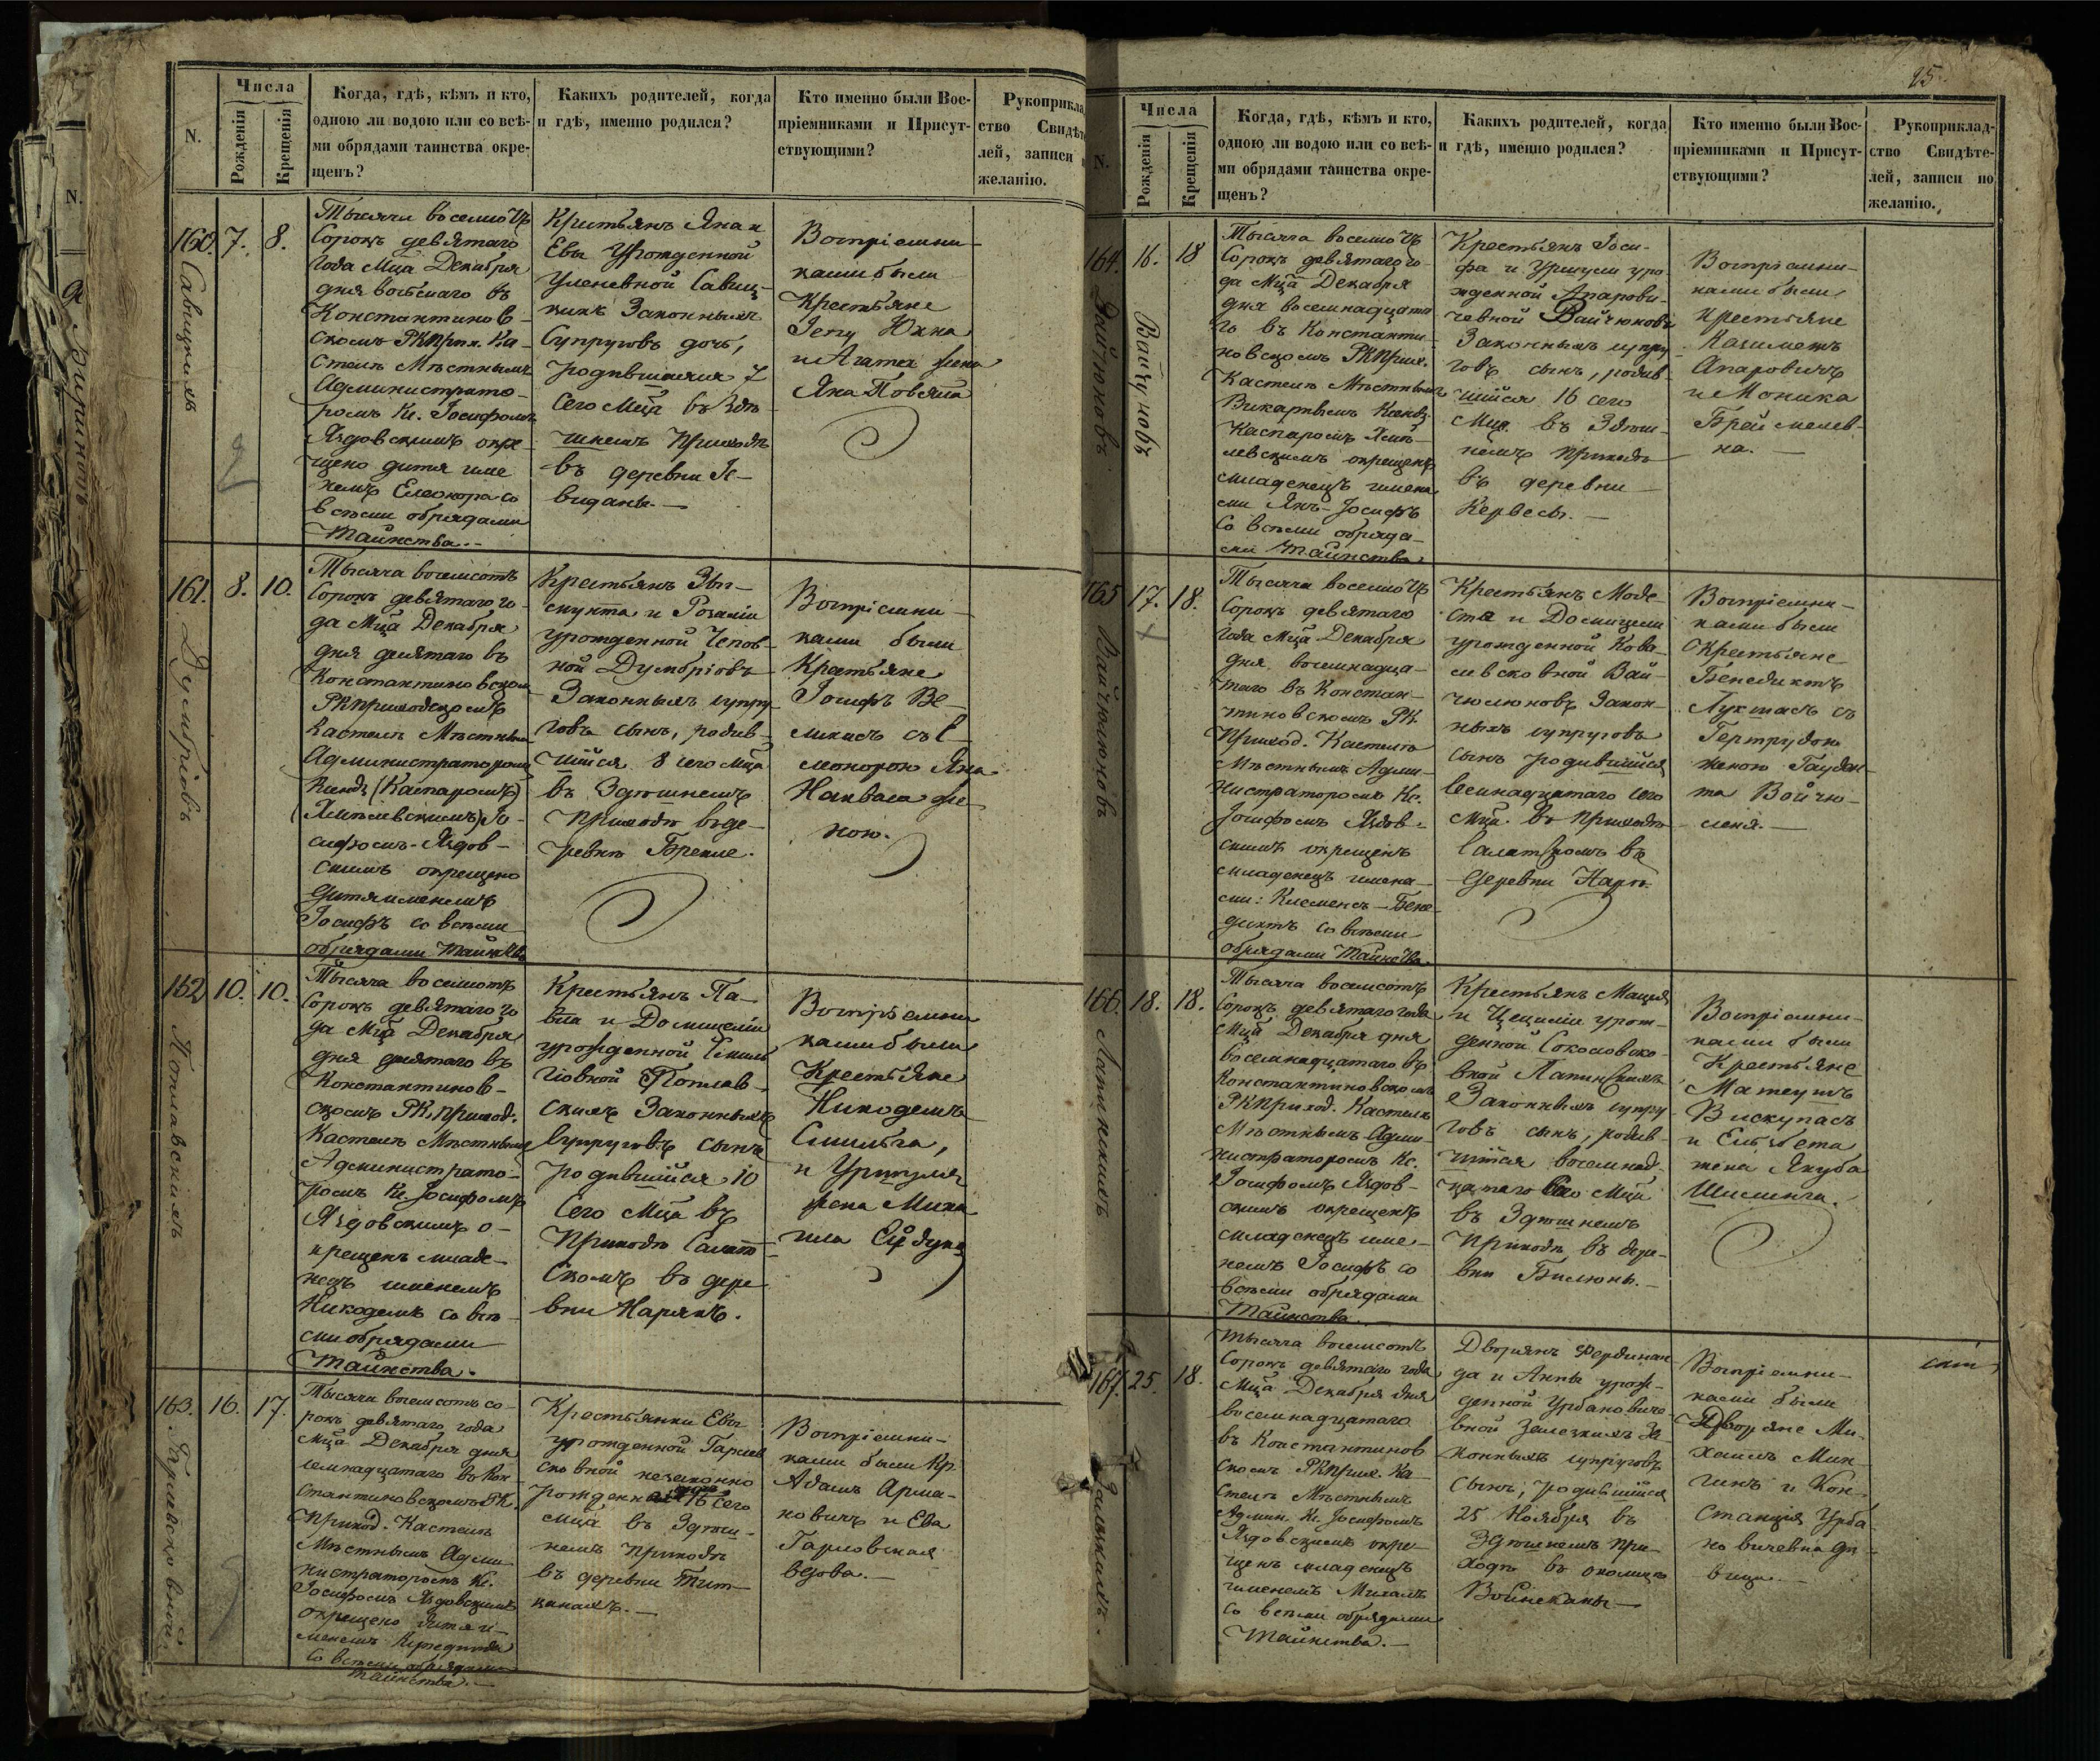 N.
Числа
Рожденія
Крещенія
Когда, гдѣ, кѣмъ и кто,
одною ли водою или со всѣ-
ми обрядами таинства окре-
щенъ?
Какихъ родителей, когда
и гдѣ, именно родился?
Кто именно были Вос-
пріемниками и Присут-
ствующими?
Рукоприкла
ство Свидѣт
лей, записи
желанію.
160. 7. 8.
Савицкихъ
Тысяча восемсотъ
Сорокъ девятаго
года Мца Декабря
дня восьмаго въ
Константинов-
скомъ РКприх. Ка-
стелѣ Мѣстнымъ
Администрато-
ромъ Кс. Іосифомъ
Яздовскимъ окре-
щено дитя име
немъ Елеонора со
всѣми обрядами
Таинства.-
Крестьянъ Яна и
Евы Урожденной
Савиц-
кихъ Законныхъ
Супруговъ дочь,
родившаяся 7
сего Мца въ Здѣ-
шнемъ Приходѣ
въ деревни Ге-
виданы.-
Воспріемни-
ками были
Крестьяне
Юкна
и Агата жена
Яна
161. 8. 10.
Думбріовъ
Тысяча восемсотъ
Сорокъ девятаго го-
да Мца Декабря
дня десятаго въ
Константиновскомъ
РКприходскомъ
Кастелѣ Мѣстнымъ
Администраторомъ
Ксендз (Каспаромъ)
(Ямолевскимъ) Іо-
сифомъ-Яздов-
скимъ окрещено
дитя именемъ
Іосифъ со всѣми
обрядами Таинства
Крестьянъ Зы-
гмунта и Розаліи
урожденной Чепов-
ной Думбріовъ
Законныхъ супру-
говъ сынъ, родив-
шійся 8 сего Мца
въ Здѣшнемъ
Приходѣ въ де-
ревнѣ Брекше.
Воспріемни-
ками были
Крестьяне
Іосифъ Ве-
ликисъ съ Е-
леонорою Яна
Накваса же-
ною.
162 10. 10.
Поплавскихъ
Тысяча восемсотъ
Сорокъ девятаго го
да Мца Декабря
дня десятаго въ
Константинов-
скомъ РК приход.
Кастелѣ Мѣстнымъ
Администрато-
ромъ Кс. Іосифомъ
Яздовскимъ о-
крещенъ младе-
нецъ именемъ
Никодемъ со всѣ-
ми обрядами
Таинства.
Крестьянъ Па-
вла и Домицели
урожденной Смиль
гіовной Поплав-
скихъ Законныхъ
Супруговъ сынъ
родившійся 10
Сего Мца въ
Приходѣ Салат-
скомъ въ дере
вни Нарянъ.
Воспріемни
ками были
Крестьяне
Никодемъ
Смильга,
и Уршуля
жена Миха
ила
163. 16. 17.
Гарлавсковной
Тысяча восемсотъ со-
рокъ девятаго года
Мца Декабря дня
семнадцатаго въ Кон-
стантиновскомъ РК.
Приход. Кастелѣ
Мѣстнымъ Адми-
нистраторомъ Кс.
Іосифомъ Яздовскимъ
окрещено дитя и-
менемъ
Со всѣми обрядами
Таинства.-
Крестьянки Евы
урожденной Гарлев
сковной незаконно
рожденная 16 сего
Мца въ Здѣш-
немъ Приходѣ
въ деревни Тит-
канахъ.-
Воспріемни-
ками были Кр
Адамъ Арма-
новичъ и Ева
Гарловская
вдова.-
25.
N.
Числа
Рожденія
Крещенія
Когда, гдѣ, кѣмъ и кто,
одною ли водою или со всѣ-
ми обрядами таинства окре-
щенъ?
Какихъ родителей, когда
и гдѣ, именно родился?
Кто именно были Вос-
пріемниками и Присут-
ствующими?
Рукоприклад-
ство Свидѣте-
лей, записи по
желанію.
164. 16. 18
Войтюновъ
Вайчуновъ
Тысяча восемсотъ
Сорокъ девятаго го-
да Мца Декабря
дня восемнадцата
го въ Константи-
новскомъ РКприх.
Кастелѣ Мѣстнымъ
Викарнымъ Ксендз
Каспаромъ Ямо-
левскимъ окрещенъ
младенецъ имена
ми Янъ-Іосифъ
Со всѣми обряда-
ми Таинства
Крестьянъ Іоси-
фа и Уршули уро-
жденной Апарови-
чевной Вайчюновъ
Законныхъ супру-
говъ сынъ, родив-
шійся 16 сего
Мца въ Здѣш-
немъ Приходѣ
въ деревни
Кервесы.-
Воспріемни-
ками были
Крестьяне
Казимежъ
Апаровичъ
и Моника
Бреймелев-
на.-
165 17. 18.
Вайчюлюновъ
Тысяча восемсотъ
Сорокъ девятаго
года Мца Декабря
дня восемнадца-
таго въ Констан-
тиновскомъ РК
Приход. Кастелѣ
Мѣстнымъ Адми-
нистраторомъ Кс.
Іосифомъ Яздов-
скимъ окрещенъ
младенецъ имена-
ми: Клеменсъ-Бене-
диктъ со всѣми
обрядами Таинства.
Крестьянъ Моде-
ста и Домицели
урожденной Кова-
левсковной Вай-
чюлюновъ Закон-
ныхъ супруговъ
сынъ родившійся
Семнадцатаго сего
Мца. въ Приходѣ
Салатскомъ въ
деревни
Воспріемни-
ками были
Крестьяне
Бенедиктъ
Лукшасъ съ
Гертрудою
женою Гауден-
та Войчю-
леня.-
166. 18. 18.
Лапинскихъ
Тысяча восемсотъ
Сорокъ девятаго года
Мца Декабря дня
восемнадцатаго въ
Константиновскомъ
РКПриход. Кастелѣ
Мѣстнымъ Адми-
нистраторомъ Кс.
Іосифомъ Яздов-
скимъ окрещенъ
младенецъ име-
немъ Іосифъ со
всѣми обрядами
Таинства
Крестьянъ Мацея
и Цециліи урож-
денной Соколовско-
вной Лапинскихъ
Законныхъ супру-
говъ сынъ, родив-
шійся восемнад-
цатаго Сего Мца
въ Здѣшнемъ
Приходѣ въ дере-
вни Билюны.-
Воспріемни-
ками были
Крестьяне
Матеушъ
Вискупасъ
и Ельзбета
жена Якуба
167. 25. 18.
Залѣскихъ.
Тысяча восемсотъ
Сорокъ девятаго года
Мца Декабря дня
восемнадцатаго
въ Константинов
скомъ РКприх. Ка-
стелѣ Мѣстнымъ
Админ. Кс. Іосифомъ
Яздовскимъ окре-
щенъ младенецъ
именемъ Михалъ
со всѣми обрядами
Таинства.-
Дворянъ Фердинан
да и Анны урож-
денной Урбановиче-
вной Залескихъ За-
конныхъ супруговъ
сынъ, родившійся
25 Ноября въ
Здѣшнемъ При-
ходѣ въ околицѣ
Войнеканы.-
Воспріемни-
ками были
Дворяне Ми-
халъ Мин-
гинъ и Кон-
станція Урба-
новичевна дѣ-
вица.-